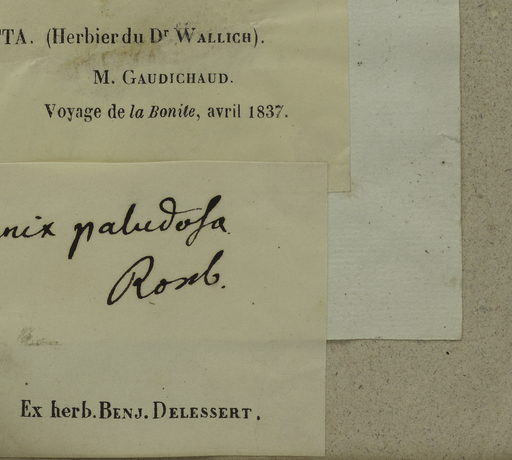 TTA. (Herbier du Dr WALLICH).
M. GAUDICHAUD.
Voyage de la Bonite, avril 1837.
nix paludosa
Roxb.
Ex herb. BENJ. DELESSERT.